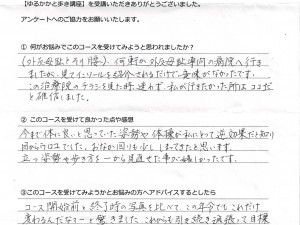 【ゆるかかと歩き講座】を受講いただきありがとうございました。
アンケートへのご協力をお願いいたします。
① 何がお悩みでこのコースを受けてみようと思われましたか？
（外反母趾とそり腰）。何軒か外反母趾専門の病院へ行き
ましたが、見てインソールを紹介されるだけで意味がなかったです。
この治療院のチラシを見た時、迷わず 私が行きたかった所はココだ
と確信しました。
② このコースを受けて良かった点や感想
今まで体に良いと思っていた姿勢や体操が私にとって逆効果だと知り
目からウロコでした。おなか回りも少しへってきたと思います。
立つ姿勢や歩き方を一から見直せた事が嬉しかったです。
③このコースを受けてみようかとお悩みの方へアドバイスするとしたら
コース開始前と終了時の写真を比べて、この年令でもこれだけ
変わるんだなぁーと驚きました。これからも引き続き頑張って目標